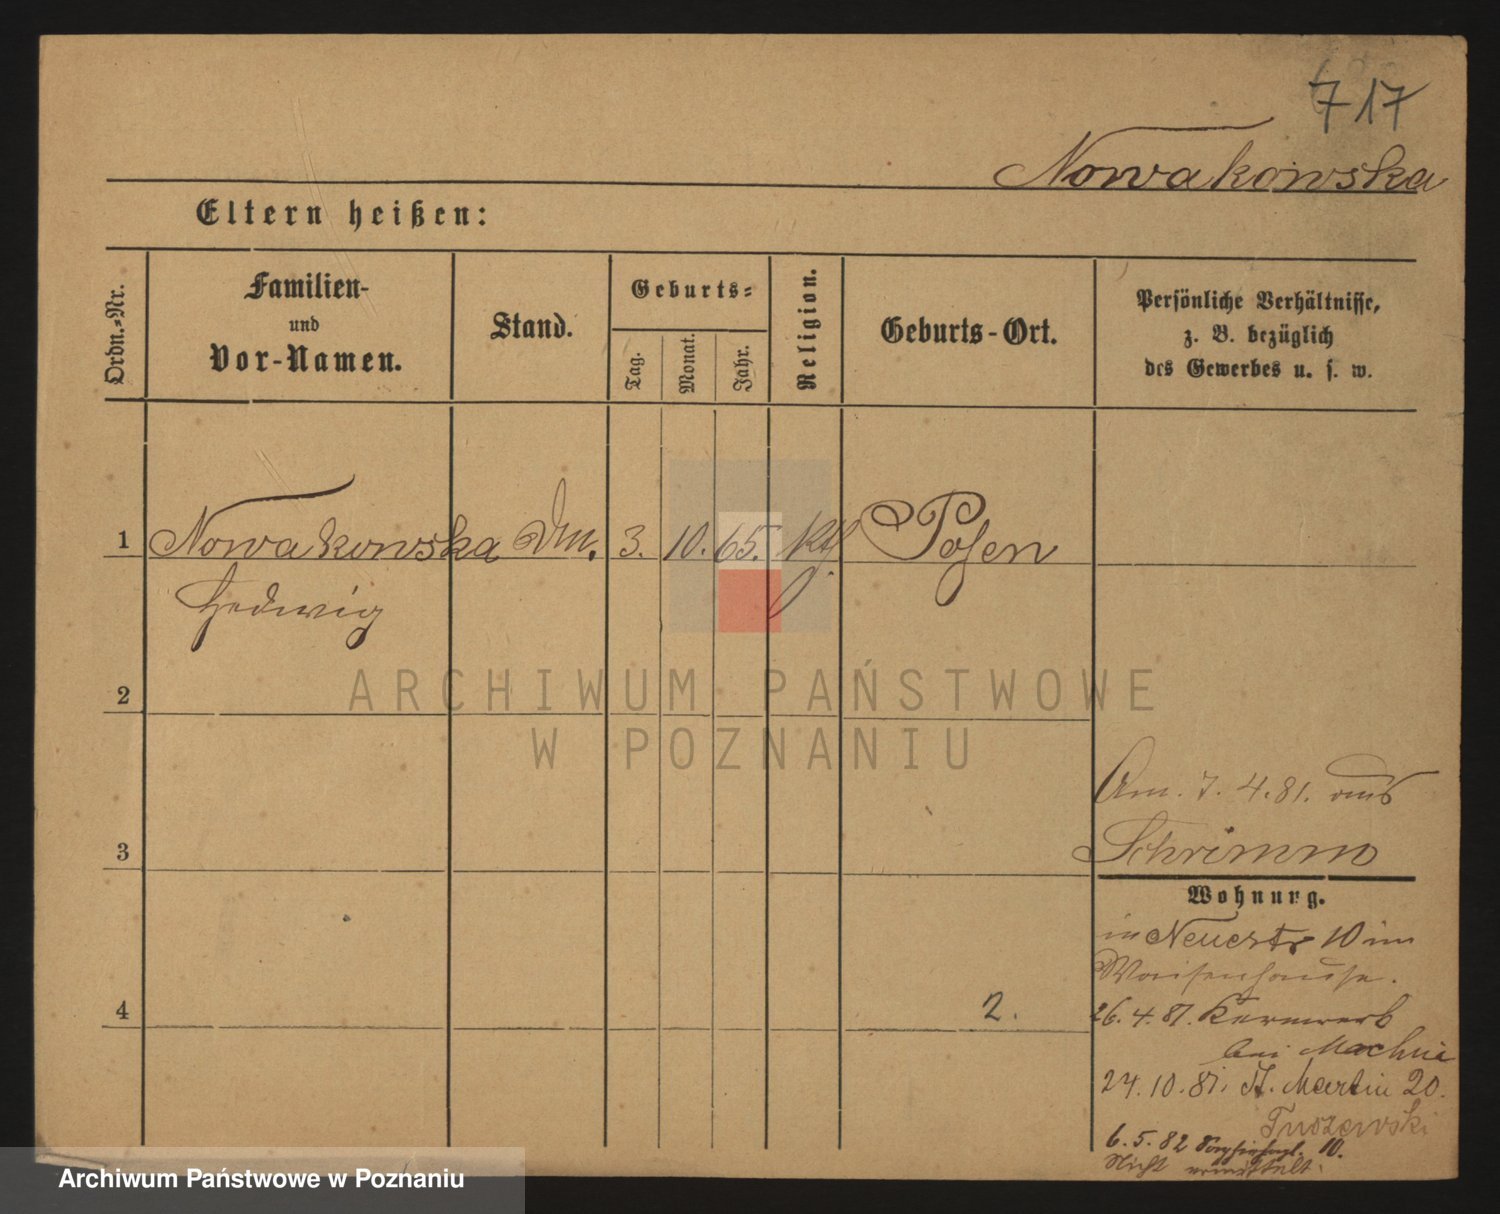 717
Nowakowska
Eltern heißen:
Ordn.=Nr.
Familien-
und
Vor-Namen.
Stand.
Geburts=
Tag.
Monat.
Jahr.
Religion.
Geburts-Ort.
Persönliche Verhältnisse,
z. B. bezüglich
des Gewerbes u. s. w.
1 Nowakowska 3. 10. 65. Kth Posen
Hedwig
2
ARCHIWUM PAŃSTWOWE
W POZNANIU
Am. 7. 4. 81. aus
3 Schrimm
Wohnung.
in Neuestr 10 im
Waisenhause.
4 2.
26. 4. 81. Kernwerk
bei Machui
24. 10. 81. St. Martin 20.
Tuszewski
6. 5. 82 10.
Nicht ermittelt.
Archiwum Państwowe w Poznaniu